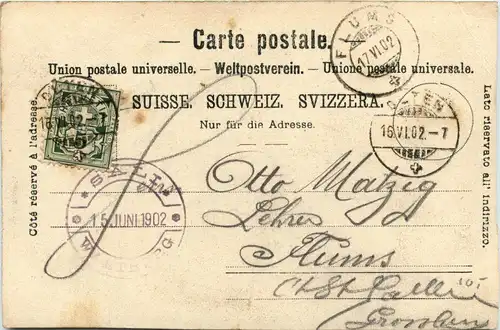 — Carte postale. —
Union postale universelle. — Weltpostverein. — Unione postale universale.
SUISSE. SCHWEIZ. SVIZZERA.
Nur für die Adresse.
Côté réservé à l'adresse.
Lato riservato all' indirizzo.
FLUMS
17.VI.02
OLTEN
16.VI.02.–7
15. JUNI 1902
Otto Matzig
Lehrer
Flums
Ct St. Gallen